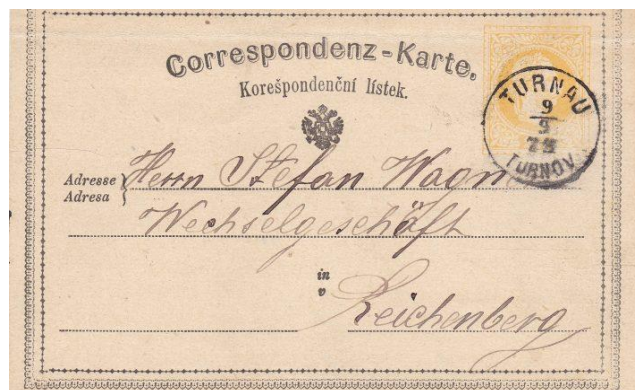 Correspondenz-Karte.
Korešpondenční lístek.
TURNAU
9
3
73
TURNOV
Adresse
Adresa
Herrn Stefan Wagn
Wechselgeschäft
in
v
Reichenberg